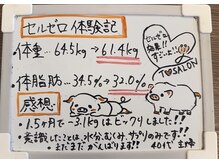 セルゼロ体験記
体重…64.5kg→61.4kg
体脂肪…34.5%→32.0%
セルゼロ
効果!!
すごい!!
TOSALON
感想:
・1.5ヶ月で-3.1kgはビックリしました!!
・意識したことは、水分、むくみ、やせ
・まだまだがんばります!! 40代 主婦